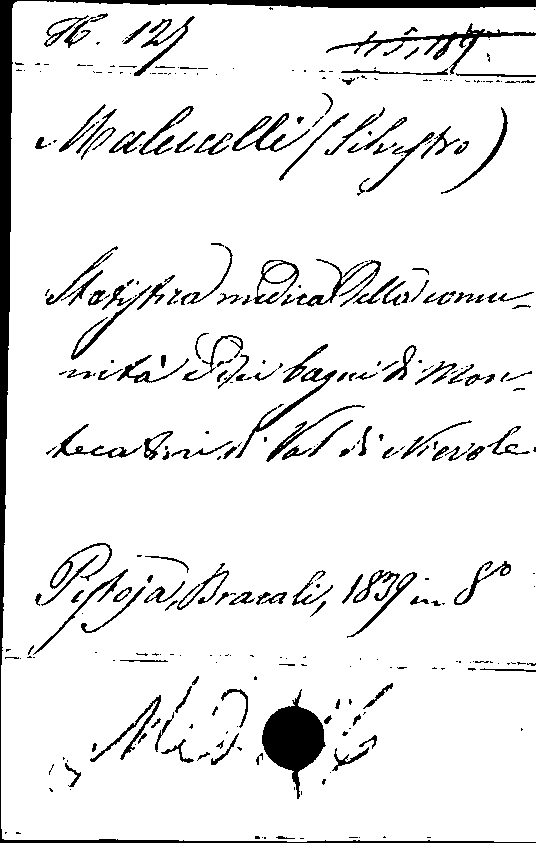 H. 127 45,189.
Malucelli (Silvestro)
Statistica medica della comu-
nità e dei bagni di Mon-
tecatini di Val di Nievole
Pistoja, Bracali, 1839 in 8°
Med.